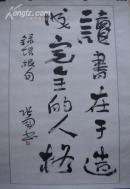 讀書在于造
成完全的人格
錄培根句